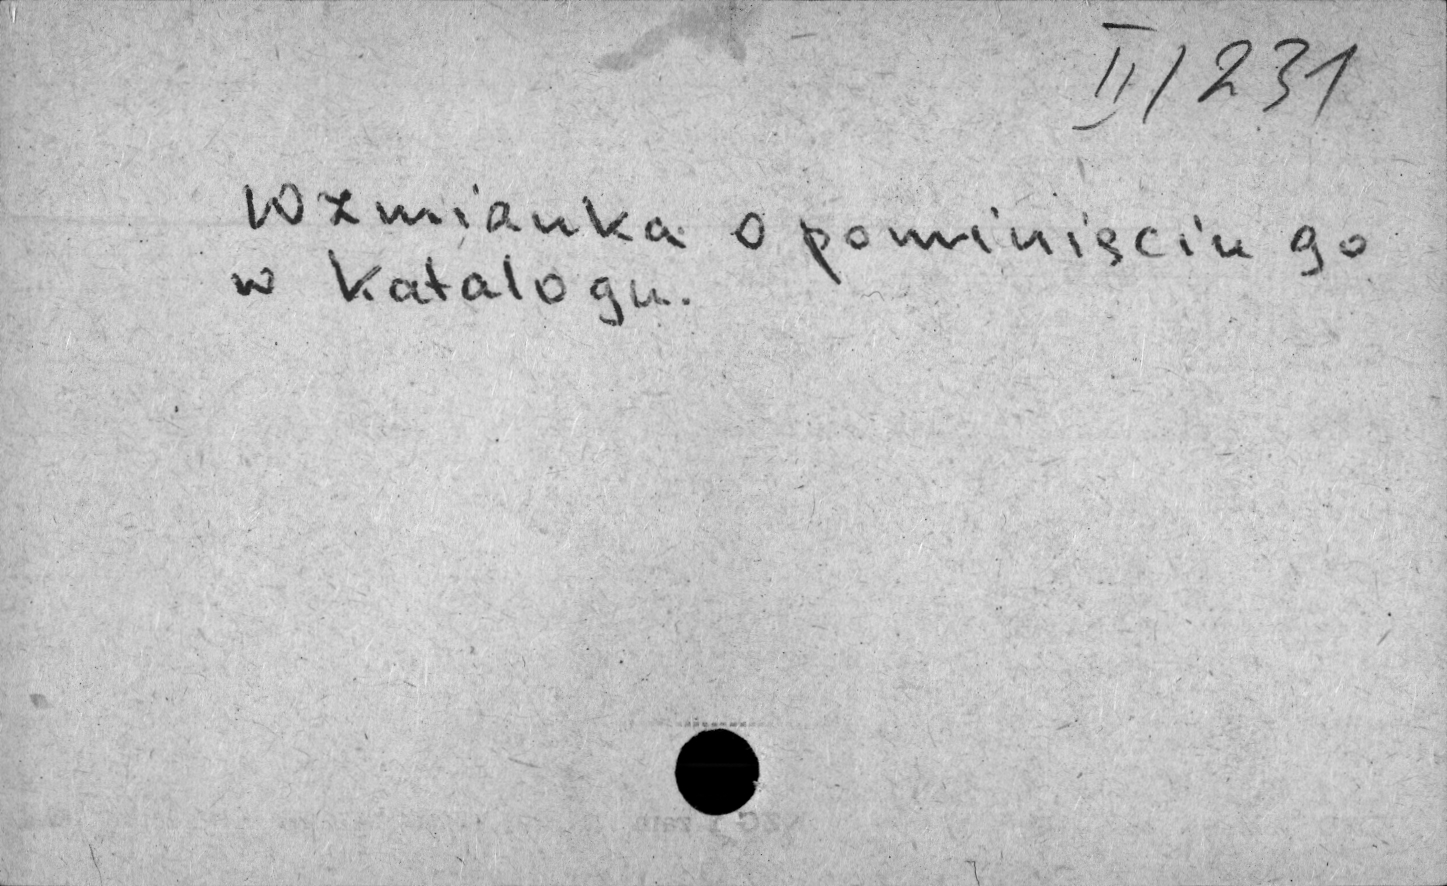 II/231
Wzmianka o pominięciu go
w katalogu.